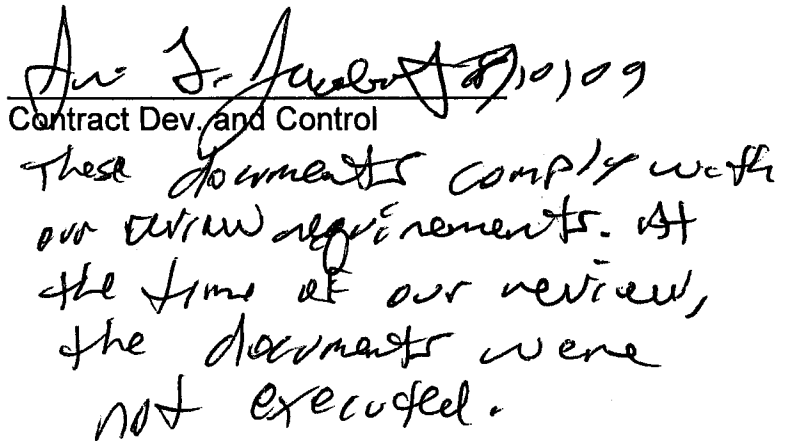 8/10/09
Contract Dev. and Control
These documents comply with
our review requirements. At
the time of our review,
the documents were
not executed.